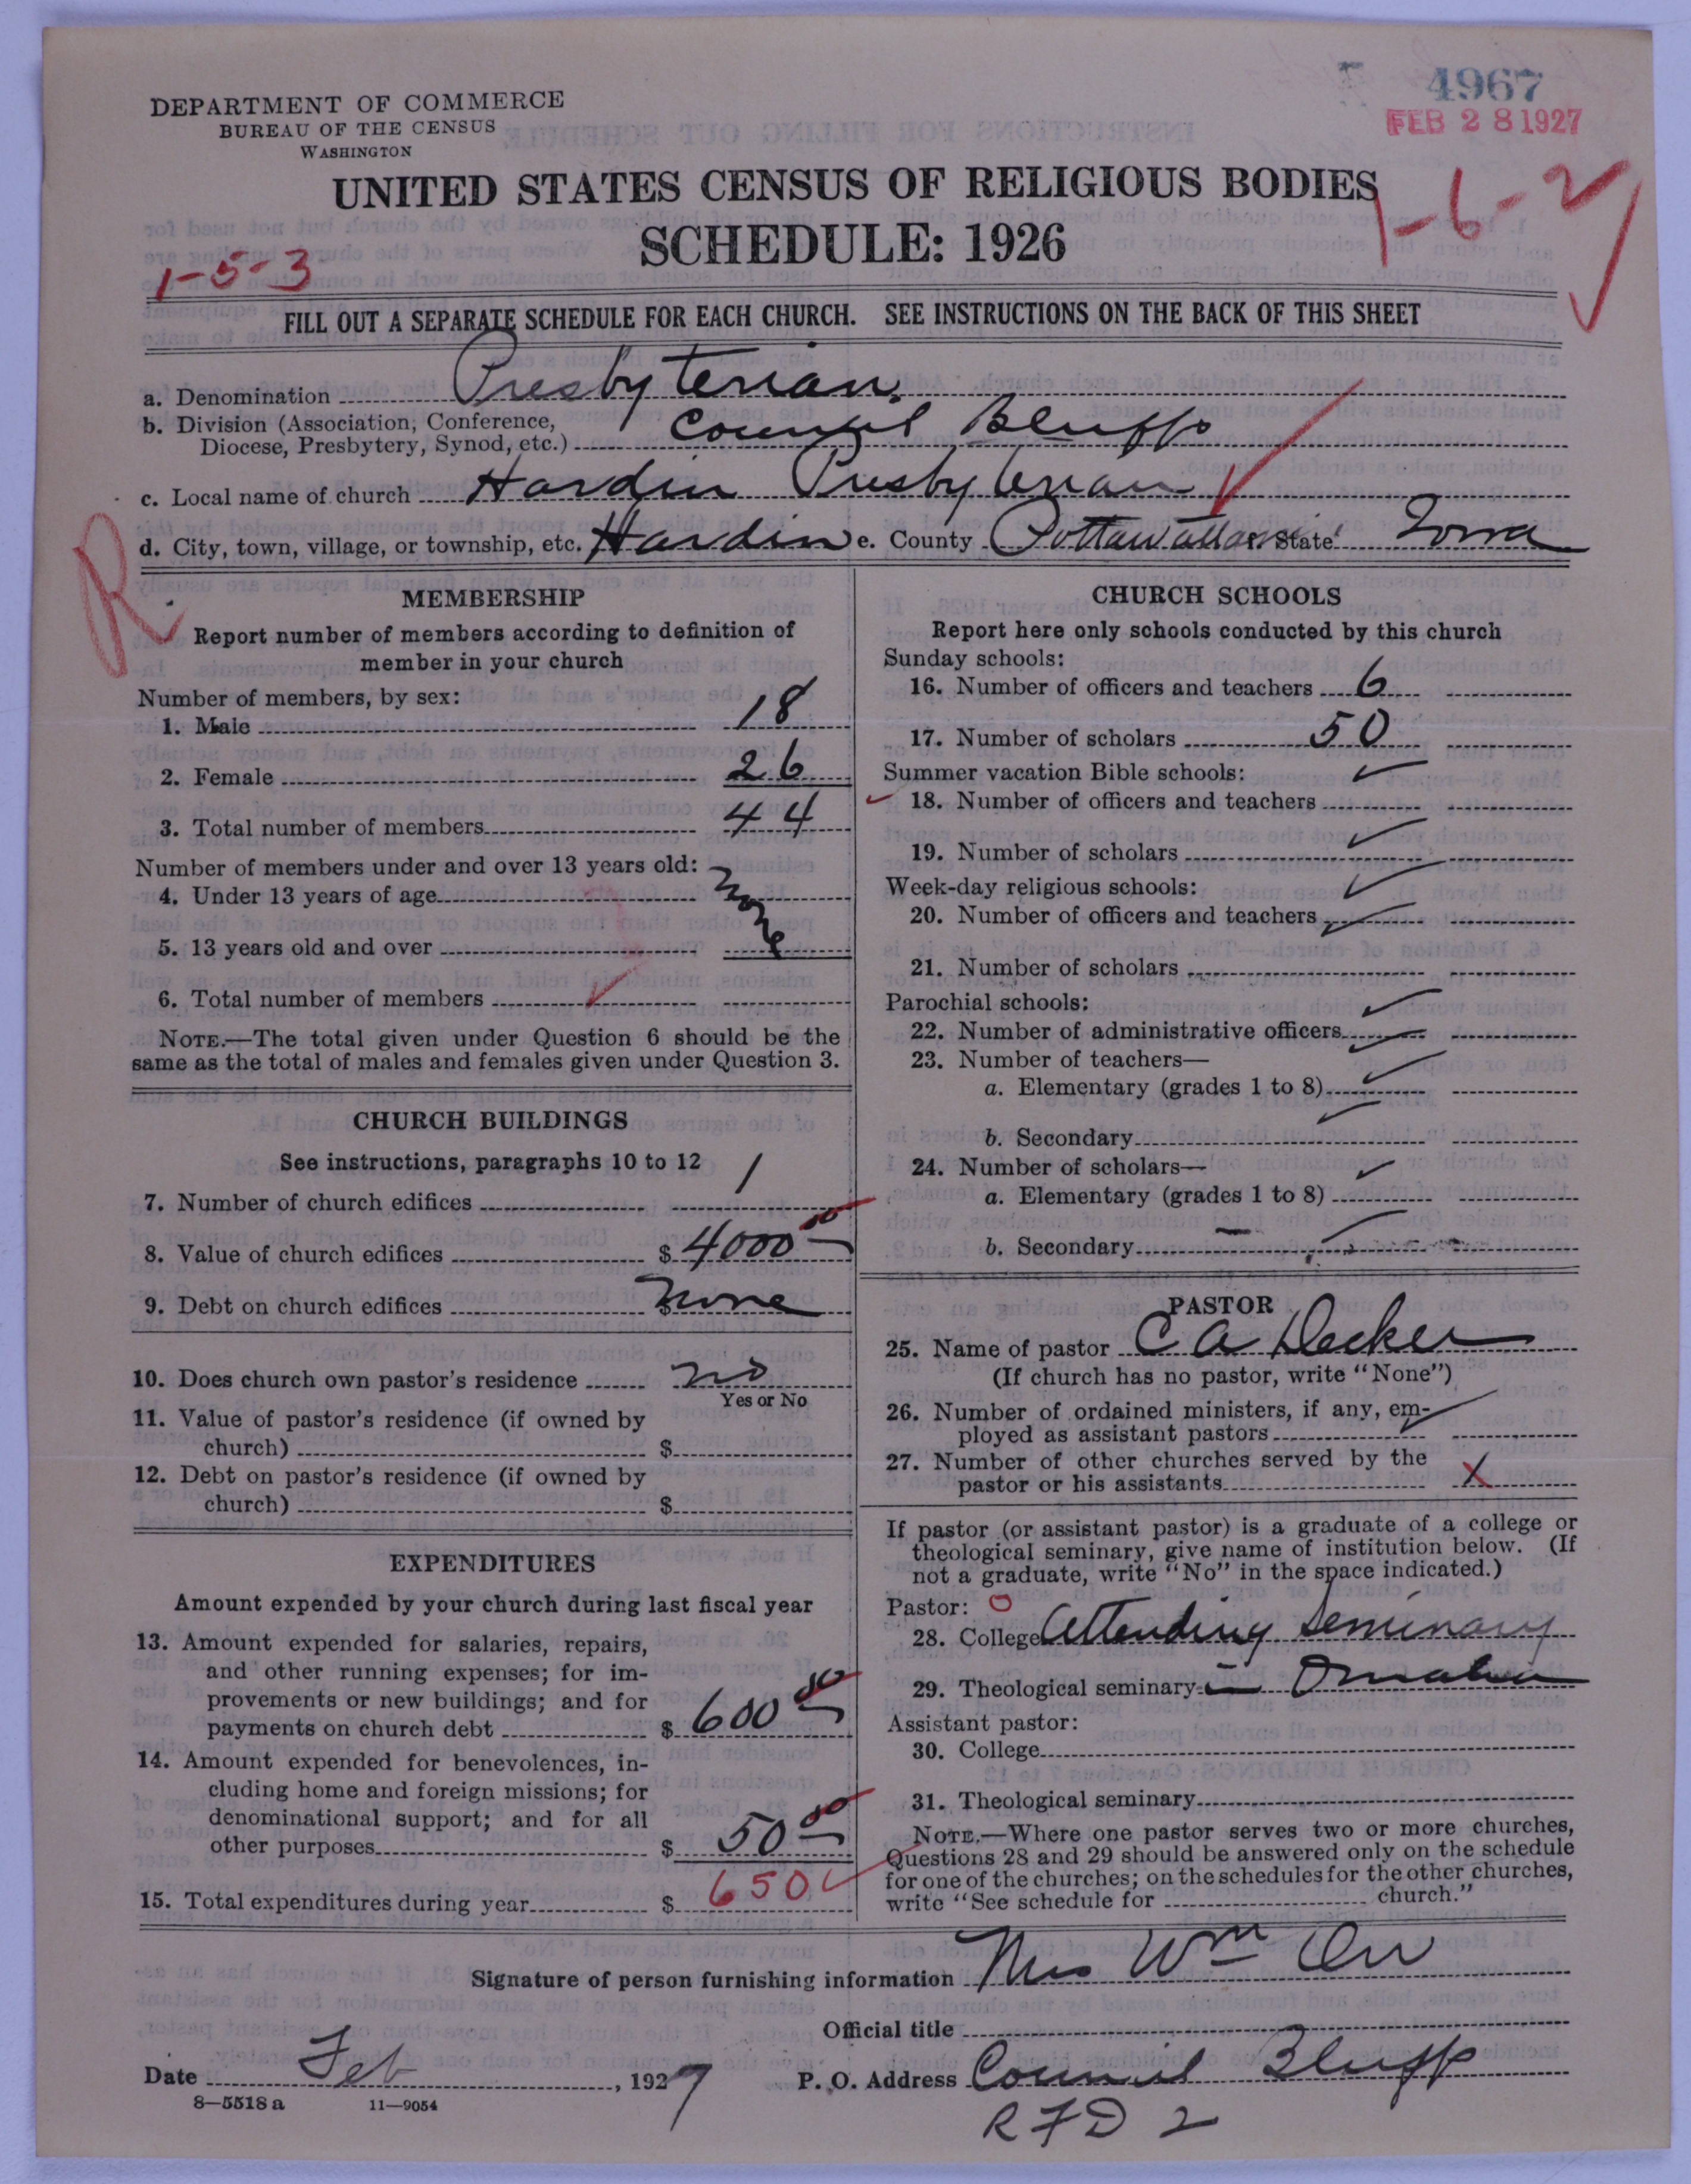 4967
FEB 28 1927
DEPARTMENT OF COMMERCE
BUREAU OF THE CENSUS
WASHINGTON
UNITED STATES CENSUS OF RELIGIOUS BODIES
SCHEDULE: 1926
1-6-2
1-5-3
FILL OUT A SEPARATE SCHEDULE FOR EACH CHURCH. SEE INSTRUCTIONS ON THE BACK OF THIS SHEET
a. Denomination Presbyterian.
b. Division (Association, Conference,
Diocese, Presbytery, Synod, etc.) Council Bluffs
c. Local name of church Hardin Presbyterian
d. City, town, village, or township, etc. Hardin e. County Pottawattamie f. State Iowa
R
MEMBERSHIP
Report number of members according to definition of
member in your church
Number of members, by sex:
1. Male 18
2. Female 26
3. Total number of members 44
Number of members under and over 13 years old:
4. Under 13 years of age none
5. 13 years old and over
6. Total number of members
NOTE.—The total given under Question 6 should be the
same as the total of males and females given under Question 3.
CHURCH BUILDINGS
See instructions, paragraphs 10 to 12
7. Number of church edifices 1
8. Value of church edifices $ 4000 00
9. Debt on church edifices $ None
10. Does church own pastor's residence no
Yes or No
11. Value of pastor's residence (if owned by
church) $
12. Debt on pastor's residence (if owned by
church) $
EXPENDITURES
Amount expended by your church during last fiscal year
13. Amount expended for salaries, repairs,
and other running expenses; for im-
provements or new buildings; and for
payments on church debt $ 600 00
14. Amount expended for benevolences, in-
cluding home and foreign missions; for
denominational support; and for all
other purposes $ 50 00
15. Total expenditures during year $ 650
CHURCH SCHOOLS
Report here only schools conducted by this church
Sunday schools:
16. Number of officers and teachers 6
17. Number of scholars 50
Summer vacation Bible schools:
18. Number of officers and teachers
19. Number of scholars
Week-day religious schools:
20. Number of officers and teachers
21. Number of scholars
Parochial schools:
22. Number of administrative officers
23. Number of teachers—
a. Elementary (grades 1 to 8)
b. Secondary
24. Number of scholars—
a. Elementary (grades 1 to 8)
b. Secondary
PASTOR
25. Name of pastor C A Decker
(If church has no pastor, write "None")
26. Number of ordained ministers, if any, em-
ployed as assistant pastors
27. Number of other churches served by the
pastor or his assistants X
If pastor (or assistant pastor) is a graduate of a college or
theological seminary, give name of institution below. (If
not a graduate, write "No" in the space indicated.)
Pastor: O
28. College Attending Seminary
29. Theological seminary in Omaha
Assistant pastor:
30. College
31. Theological seminary
NOTE.—Where one pastor serves two or more churches,
Questions 28 and 29 should be answered only on the schedule
for one of the churches; on the schedules for the other churches,
write "See schedule for church."
Signature of person furnishing information Mrs Wm Orr
Official title
Date Feb, 1927 P. O. Address Council Bluffs
8—5518 a 11—9054
R F D 2